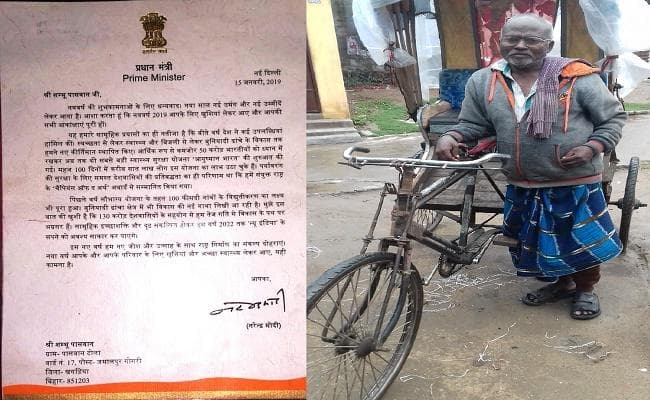 प्रधान मंत्री
Prime Minister
नई दिल्ली
15 जनवरी, 2019
श्री शम्भू पासवान जी,
नववर्ष की शुभकामनाओं के लिए धन्यवाद। नया साल नई उमंग और नई उम्मीदें
लेकर आता है। आशा करता हूं कि नववर्ष 2019 आपके लिए खुशियां लेकर आए और आपकी
सभी आकांक्षाएं पूरी हों।
यह हमारे सामूहिक प्रयासों का ही नतीजा है कि बीते वर्ष देश ने कई उपलब्धियां
हासिल कीं। स्वच्छता से लेकर स्वास्थ्य और बिजली से लेकर बुनियादी ढांचे के विकास तक
हमने नए कीर्तिमान स्थापित किए। आर्थिक रूप से कमजोर 50 करोड़ भारतीयों को ध्यान में
रखकर अब तक की सबसे बड़ी स्वास्थ्य सुरक्षा योजना 'आयुष्मान भारत' की शुरुआत की
गई। महज 100 दिनों में करीब सात लाख लोग इस योजना का लाभ उठा चुके हैं। पर्यावरण
की सुरक्षा के लिए समस्त देशवासियों की प्रतिबद्धता का ही परिणाम था कि हमें संयुक्त राष्ट्र
के 'चैंपियंस ऑफ द अर्थ' अवार्ड से सम्मानित किया गया।
पिछले वर्ष सौभाग्य योजना के तहत 100 फीसदी गांवों के विद्युतीकरण का लक्ष्य
भी पूरा हुआ। बुनियादी ढांचा क्षेत्र में भी विकास की नई गाथा लिखी जा रही है। मुझे इस
बात की खुशी है कि 130 करोड़ देशवासियों के सहयोग से हम तेज गति से विकास के पथ पर
अग्रसर हैं। सामूहिक इच्छाशक्ति और दृढ़ संकल्पित होकर हम वर्ष 2022 तक 'न्यू इंडिया' के
सपने को अवश्य साकार कर पाएंगे।
इस नए वर्ष हम नए जोश और उत्साह के साथ राष्ट्र निर्माण का संकल्प दोहराएं।
नया वर्ष आपके और आपके परिवार के लिए खुशियां और अच्छा स्वास्थ्य लेकर आए, यही
कामना है।
आपका,
(नरेन्द्र मोदी)
श्री शम्भू पासवान
ग्राम- पासवान टोला
वार्ड नं. 17, पोस्ट- जमालपुर गोगरी
जिला- खगड़िया
बिहार- 851203